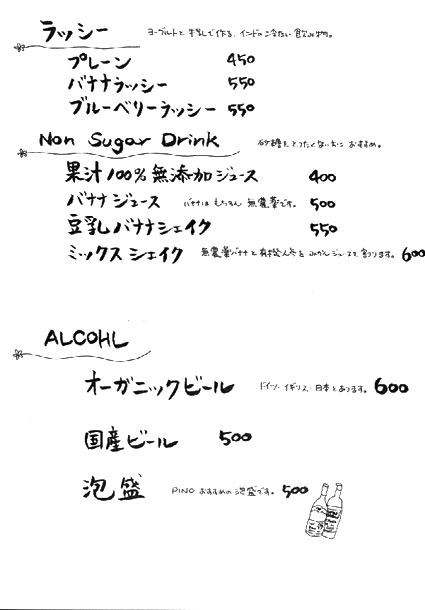 ラッシー ヨーグルトと牛乳で作る、インドの冷たい飲み物。
プレーン 450
バナナラッシー 550
ブルーベリーラッシー 550
Non Sugar Drink 砂糖をとりたくない方におすすめ。
果汁100%無添加ジュース 400
バナナジュース バナナはもちろん無農薬です。 500
豆乳バナナシェイク 550
ミックスシェイク 無農薬バナナと有機人参をみかんジュースで割ります。 600
ALCOHL
オーガニックビール ドイツ・イギリス・日本とあります。 600
国産ビール 500
泡盛 PINOおすすめの泡盛です。 500